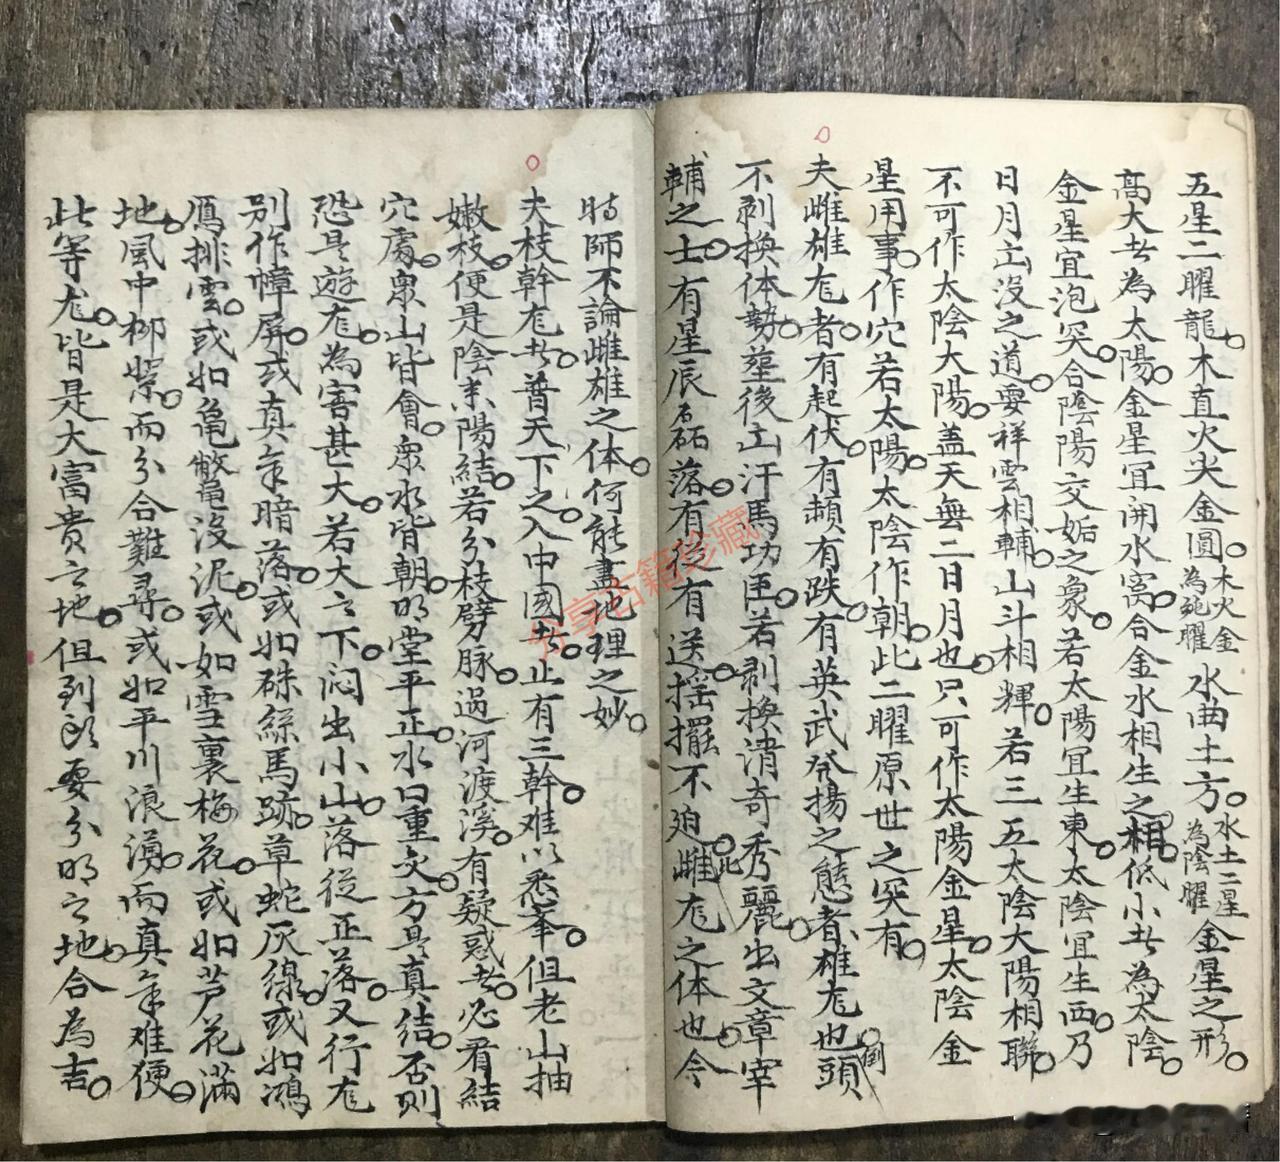 五星二曜龍木直火尖金圓木火金為兂曜水曲土方水土二星為陰曜金星之形
高大者為太陽金星宜開水窩合金水相生之相低小者為太陰
金星宜泡突合陰陽交姤之象若太陽宜生東太陰宜生西乃
日月立沒之道要祥雲相輔山斗相輝若三五太陰大陽相聯
不可作太陰大陽蓋天無二日月也只可作太陽金星太陰金
星用事作穴若太陽太陰作朝此二曜原世之突有
夫雌雄龙者有起伏有顛有跌有英武發揚之態者雄龙也頭倒
不剥換体勢壟後立汗馬功臣若剥換清奇秀麗出文章宰
輔之士有星辰磊落有從有送揺擺不廹此雌龙之体也今
時師不論雌雄之体何能盡地理之妙
夫枝幹龙者普天下之入中國者止有三幹难以悉峯但老山抽
嫩枝便是陰來陽結若分枝劈脉過河渡溪有疑惑者必看結
穴處衆山皆會衆水皆朝明堂平正水口重交方是真結否則
恐是遊龙為害甚大若大之下闷出小山落從正落又行龙
别作幛屏或真氣暗落或如硃絲馬跡草蛇灰線或如鴻
鴈排雲或如龟鱉龟沒泥或如雪裏梅花或如芦花滿
地風中柳絮而分合難尋或如平川浪湧而真氣难便
此等龙皆是大富貴之地但到頭要分明之地合為吉
分享古籍珍藏